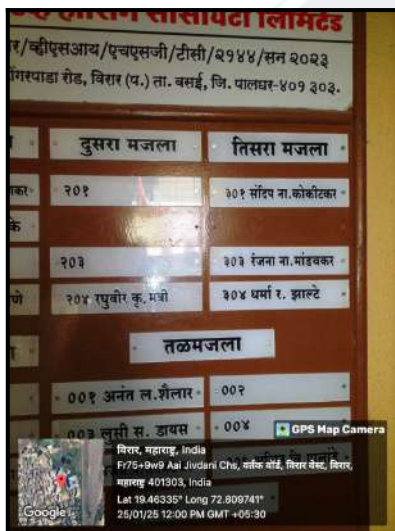 हौसिंग सोसायटी लिमिटेड
र/व्हीएसआय/एचएसजी/टीसी/२१४४/सन २०२३
गरपाडा रोड, विरार (प.) ता. वसई, जि. पालघर-४०१ ३०३.
दुसरा मजला तिसरा मजला
२०१ ३०१ संदिप ना.कोकीटकर
२०३ ३०३ रंजना ना.मांडवकर
२०४ रघुवीर कृ. मंत्री ३०४ धर्मा र. झाल्टे
तळमजला
००१ अनंत ल.शैलार ००२
००३ लुसी स. डायस ००४
GPS Map Camera
विरार, महाराष्ट्र, India
Fr75+9w9 Aai Jivdani Chs, वर्तक वॉर्ड, विरार वेस्ट, विरार,
महाराष्ट्र 401303, India
Lat 19.46335° Long 72.809741°
25/01/25 12:00 PM GMT +05:30
Google